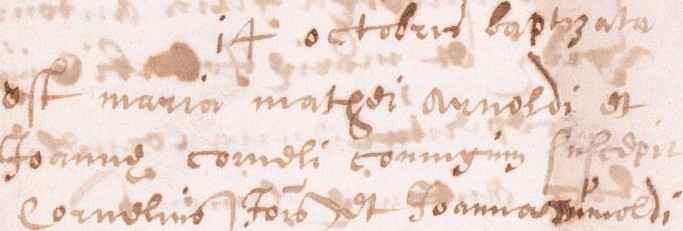 14 octobris baptizata
est maria mathei Arnoldi et
Joannę corneli coniugum suscepit
Cornelius Jois et Joanna